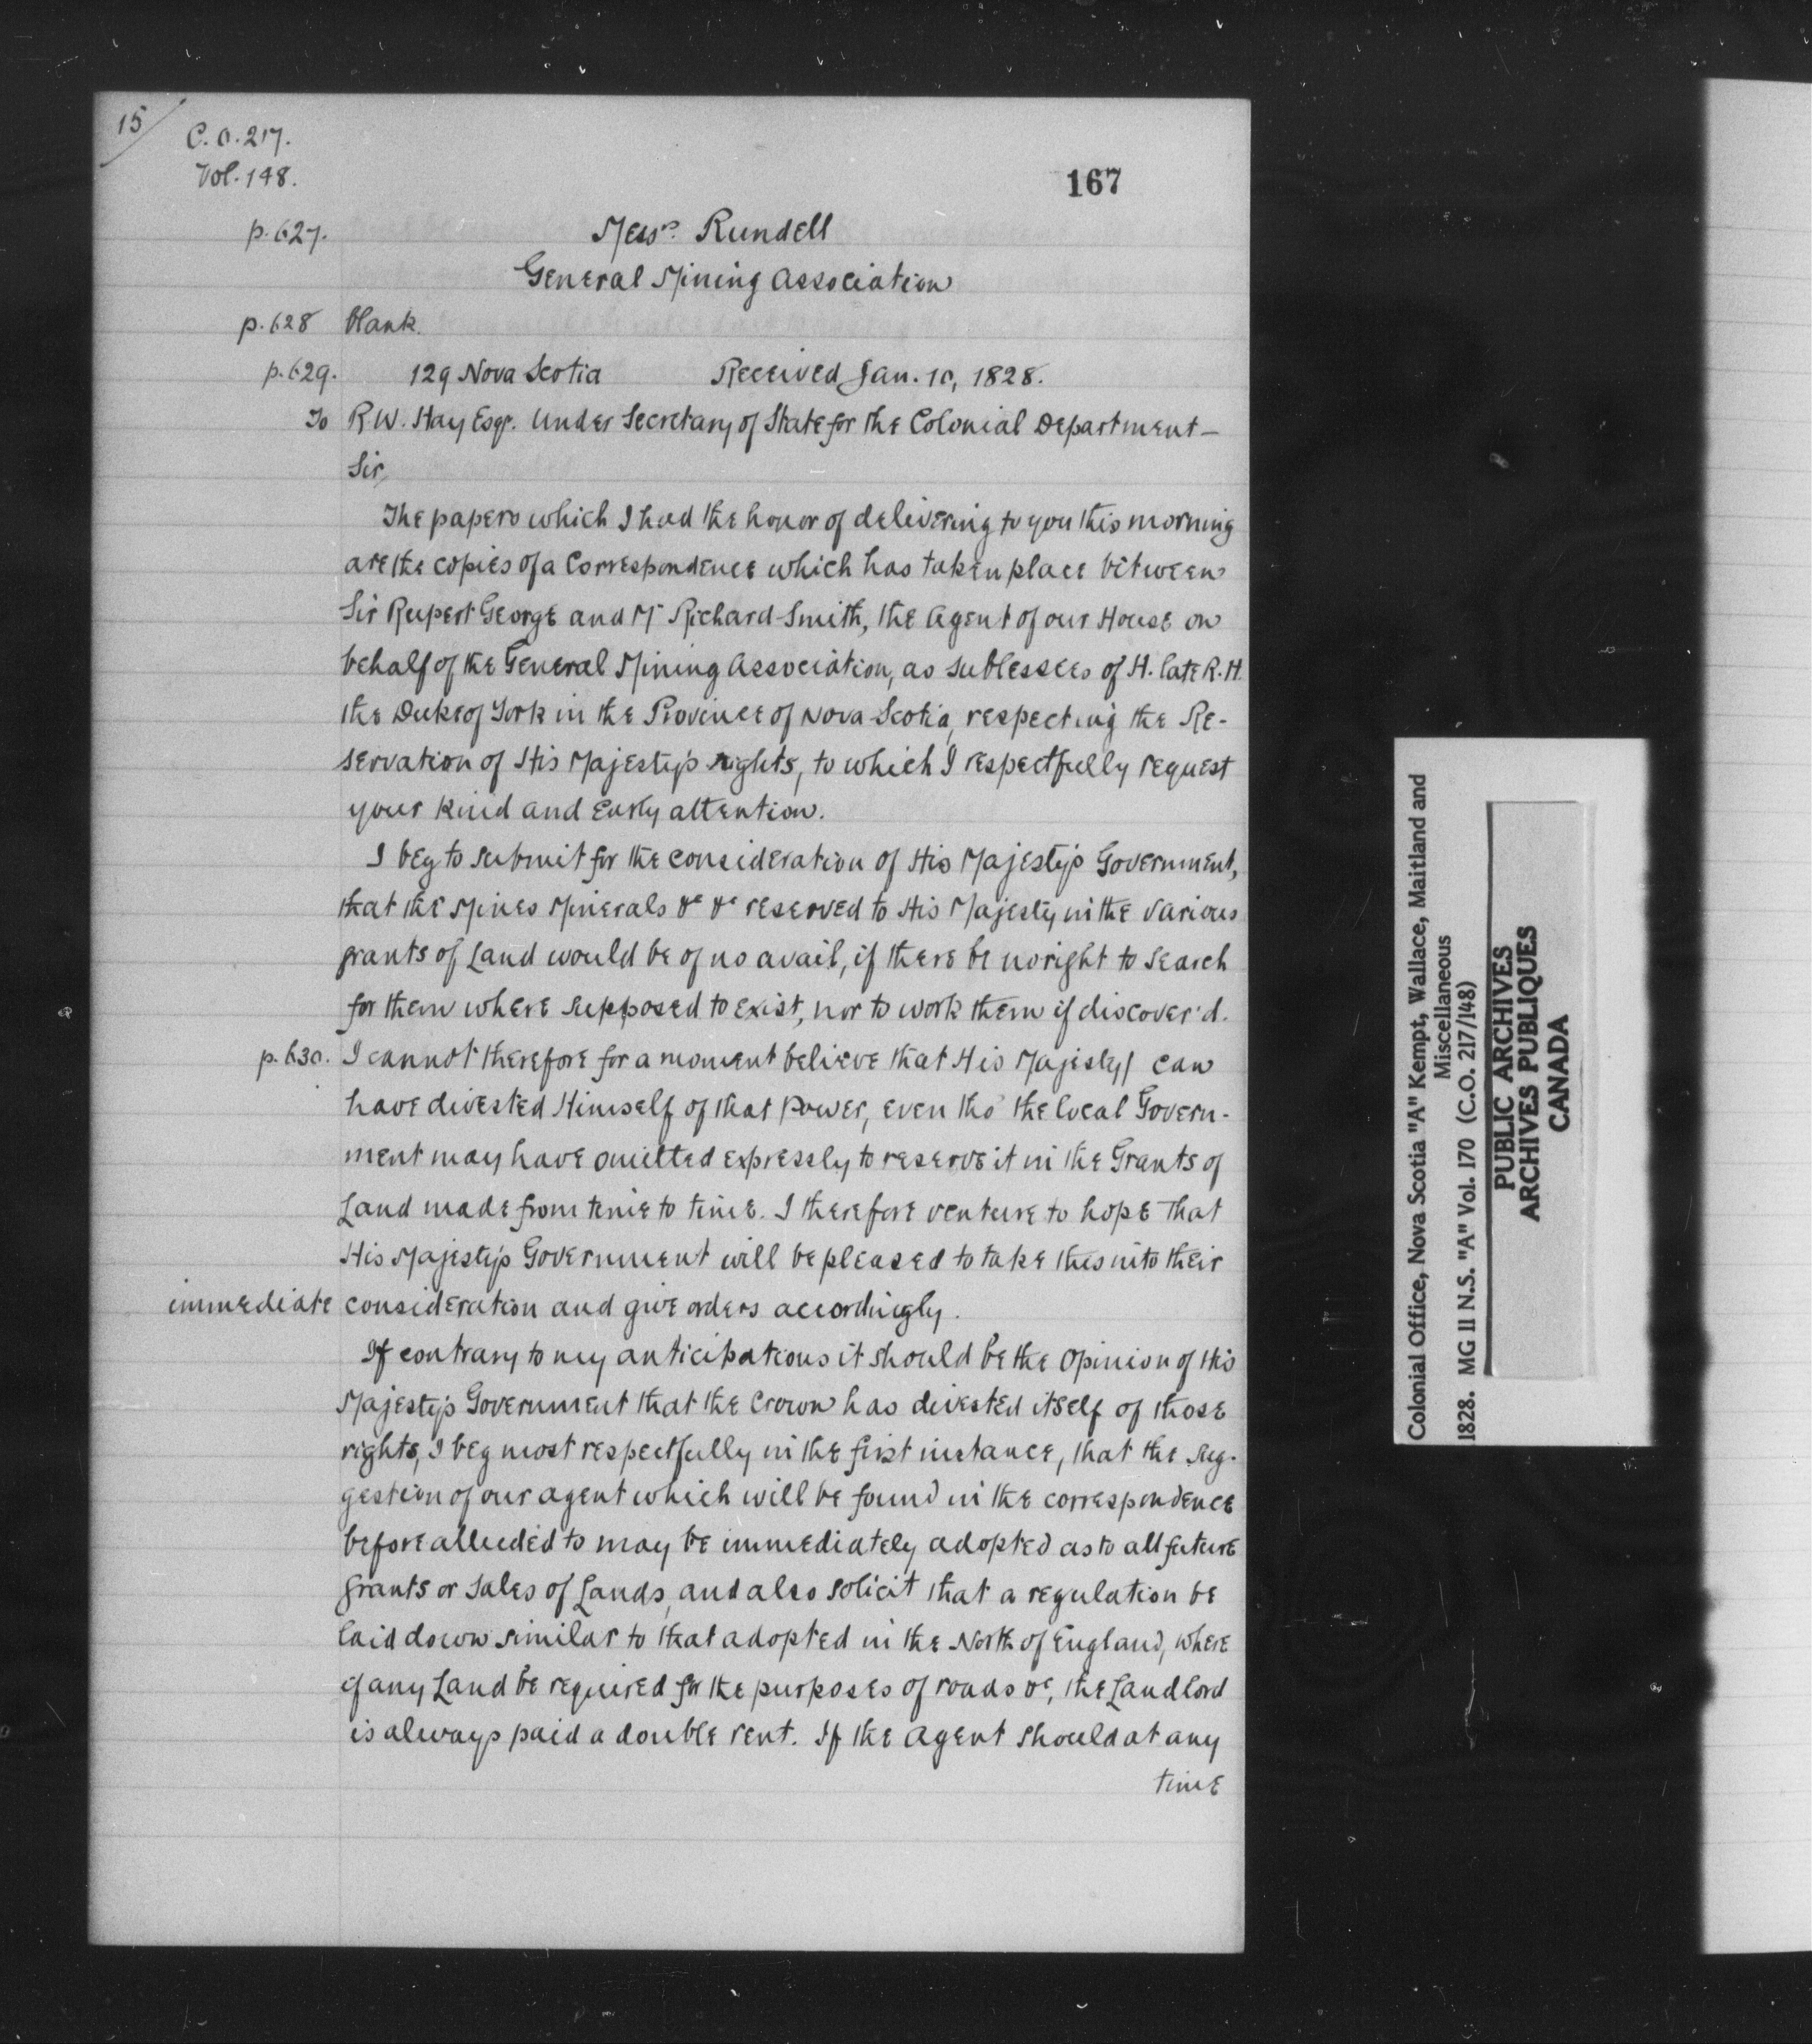 15/
C.O. 217.
Vol. 148.
167
p. 627.
Messrs. Rundell
General Mining Association
p. 628 blank.
p. 629. 129 Nova Scotia Received Jan. 10, 1828.
To R.W. Hay Esqr. Under Secretary of State for the Colonial Department—
Sir,
The papers which I had the honor of delivering to you this morning
are the copies of a Correspondence which has taken place between
Sir Rupert George and Mr Richard Smith, the Agent of our House on
behalf of the General Mining Association, as sublessees of H. late R.H.
the Duke of York in the Province of Nova Scotia, respecting the Re-
servation of His Majesty's rights, to which I respectfully request
your kind and early attention.
I beg to submit for the consideration of His Majesty's Government,
that the Mines Minerals &c &c reserved to His Majesty in the various
grants of Land would be of no avail, if there be no right to search
for them where supposed to exist, nor to work them if discover'd.
p. 630. I cannot therefore for a moment believe that His Majesty/ can
have divested Himself of that Power, even tho' the local Govern-
ment may have omitted expressly to reserve it in the Grants of
Land made from time to time. I therefore venture to hope that
His Majesty's Government will be pleased to take this into their
immediate consideration and give orders accordingly.
If contrary to my anticipations it should be the Opinion of His
Majesty's Government that the Crown has divested itself of those
rights, I beg most respectfully in the first instance, that the sug-
gestion of our agent which will be found in the correspondence
before alluded to may be immediately adopted as to all future
grants or sales of Lands, and also solicit that a regulation be
laid down similar to that adopted in the North of England, where
if any Land be required for the purposes of roads &c, the Landlord
is always paid a double rent. If the Agent should at any
time
Colonial Office, Nova Scotia "A" Kempt, Wallace, Maitland and
Miscellaneous
1828. MG 11 N.S. "A" Vol. 170 (C.O. 217/148)
PUBLIC ARCHIVES
ARCHIVES PUBLIQUES
CANADA